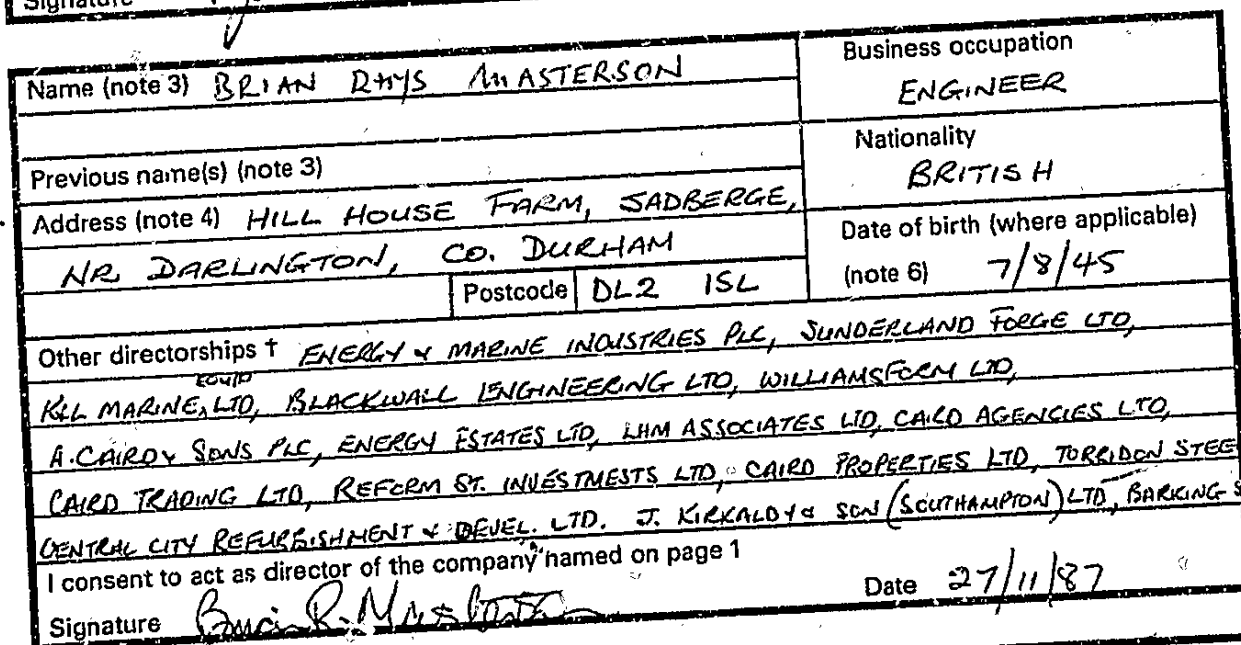 Signature
Name (note 3) BRIAN RHYS MASTERSON
Business occupation
ENGINEER
Previous name(s) (note 3)
Nationality
BRITISH
Address (note 4) HILL HOUSE FARM, SADBERGE,
NR DARLINGTON, CO. DURHAM
Postcode DL2 1SL
Date of birth (where applicable)
(note 6) 7/8/45
Other directorships † ENERGY & MARINE INDUSTRIES PLC, SUNDERLAND FORGE LTD,
K&L MARINE EQUIP LTD, BLACKWALL ENGINEERING LTD, WILLIAMSFORM LTD,
A. CAIRD & SONS PLC, ENERGY ESTATES LTD, LHM ASSOCIATES LTD, CAIRD AGENCIES LTD,
CAIRD TRADING LTD, REFORM ST. INVESTMESTS LTD, CAIRD PROPERTIES LTD, TORRIDON STEE
CENTRAL CITY REFURBISHMENT & DEVEL. LTD. J. KIRKALDY & SON (SOUTHAMPTON) LTD, BARKING S
I consent to act as director of the company named on page 1
Signature Brian R. Masterson
Date 27/11/87